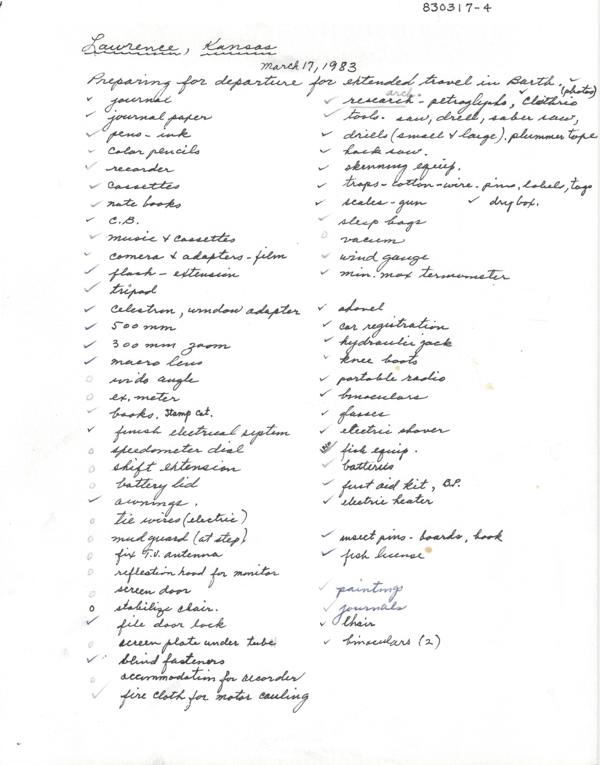 830317-4
Lawrence, Kansas
March 17, 1983
Preparing for departure for extended travel in Barth.
(photos)
✓ journal
✓ journal paper
✓ pens - ink
✓ color pencils
✓ recorder
✓ cassettes
✓ note books
✓ C.B.
✓ music & cassettes
✓ camera & adapters - film
✓ flash - extension
✓ tripod
✓ celestron, window adapter
✓ 500 mm
✓ 300 mm zoom
✓ macro lens
○ wide angle
○ ex. meter
✓ books, Stamp Cat.
✓ finish electrical system
○ speedometer dial
○ shift extension
○ battery lid
✓ awnings.
○ tie wires (electric)
○ mud guard (at step)
○ fix T.V. antenna
○ reflection hood for monitor
○ screen door
○ stabilize chair.
✓ file door lock
○ screen plate under tube
✓ blind fasteners
○ accommodation for recorder
✓ fire cloth for motor cauling
arch.
✓ research - petroglyphs, ✓ clothing
✓ tools - saw, drill, saber saw,
✓ drills (small & large). plummer tape
✓ hack saw.
✓ skinning equip.
✓ traps - cotton - wire - pins, labels, tags
✓ scales - gun ✓ dry box.
✓ sleep bags
○ vacuum
✓ wind gauge
✓ min. max termometer
✓ shovel
✓ car registration
✓ hydraulic jack
✓ knee boots
✓ portable radio
✓ binoculars
✓ glasses
✓ electric shaver
fish equip.
✓ batteries
✓ first aid kit, B.P.
✓ electric heater
✓ insect pins - boards, hook
✓ fish license
✓ paintings
✓ journals
✓ chair
✓ binoculars (2)